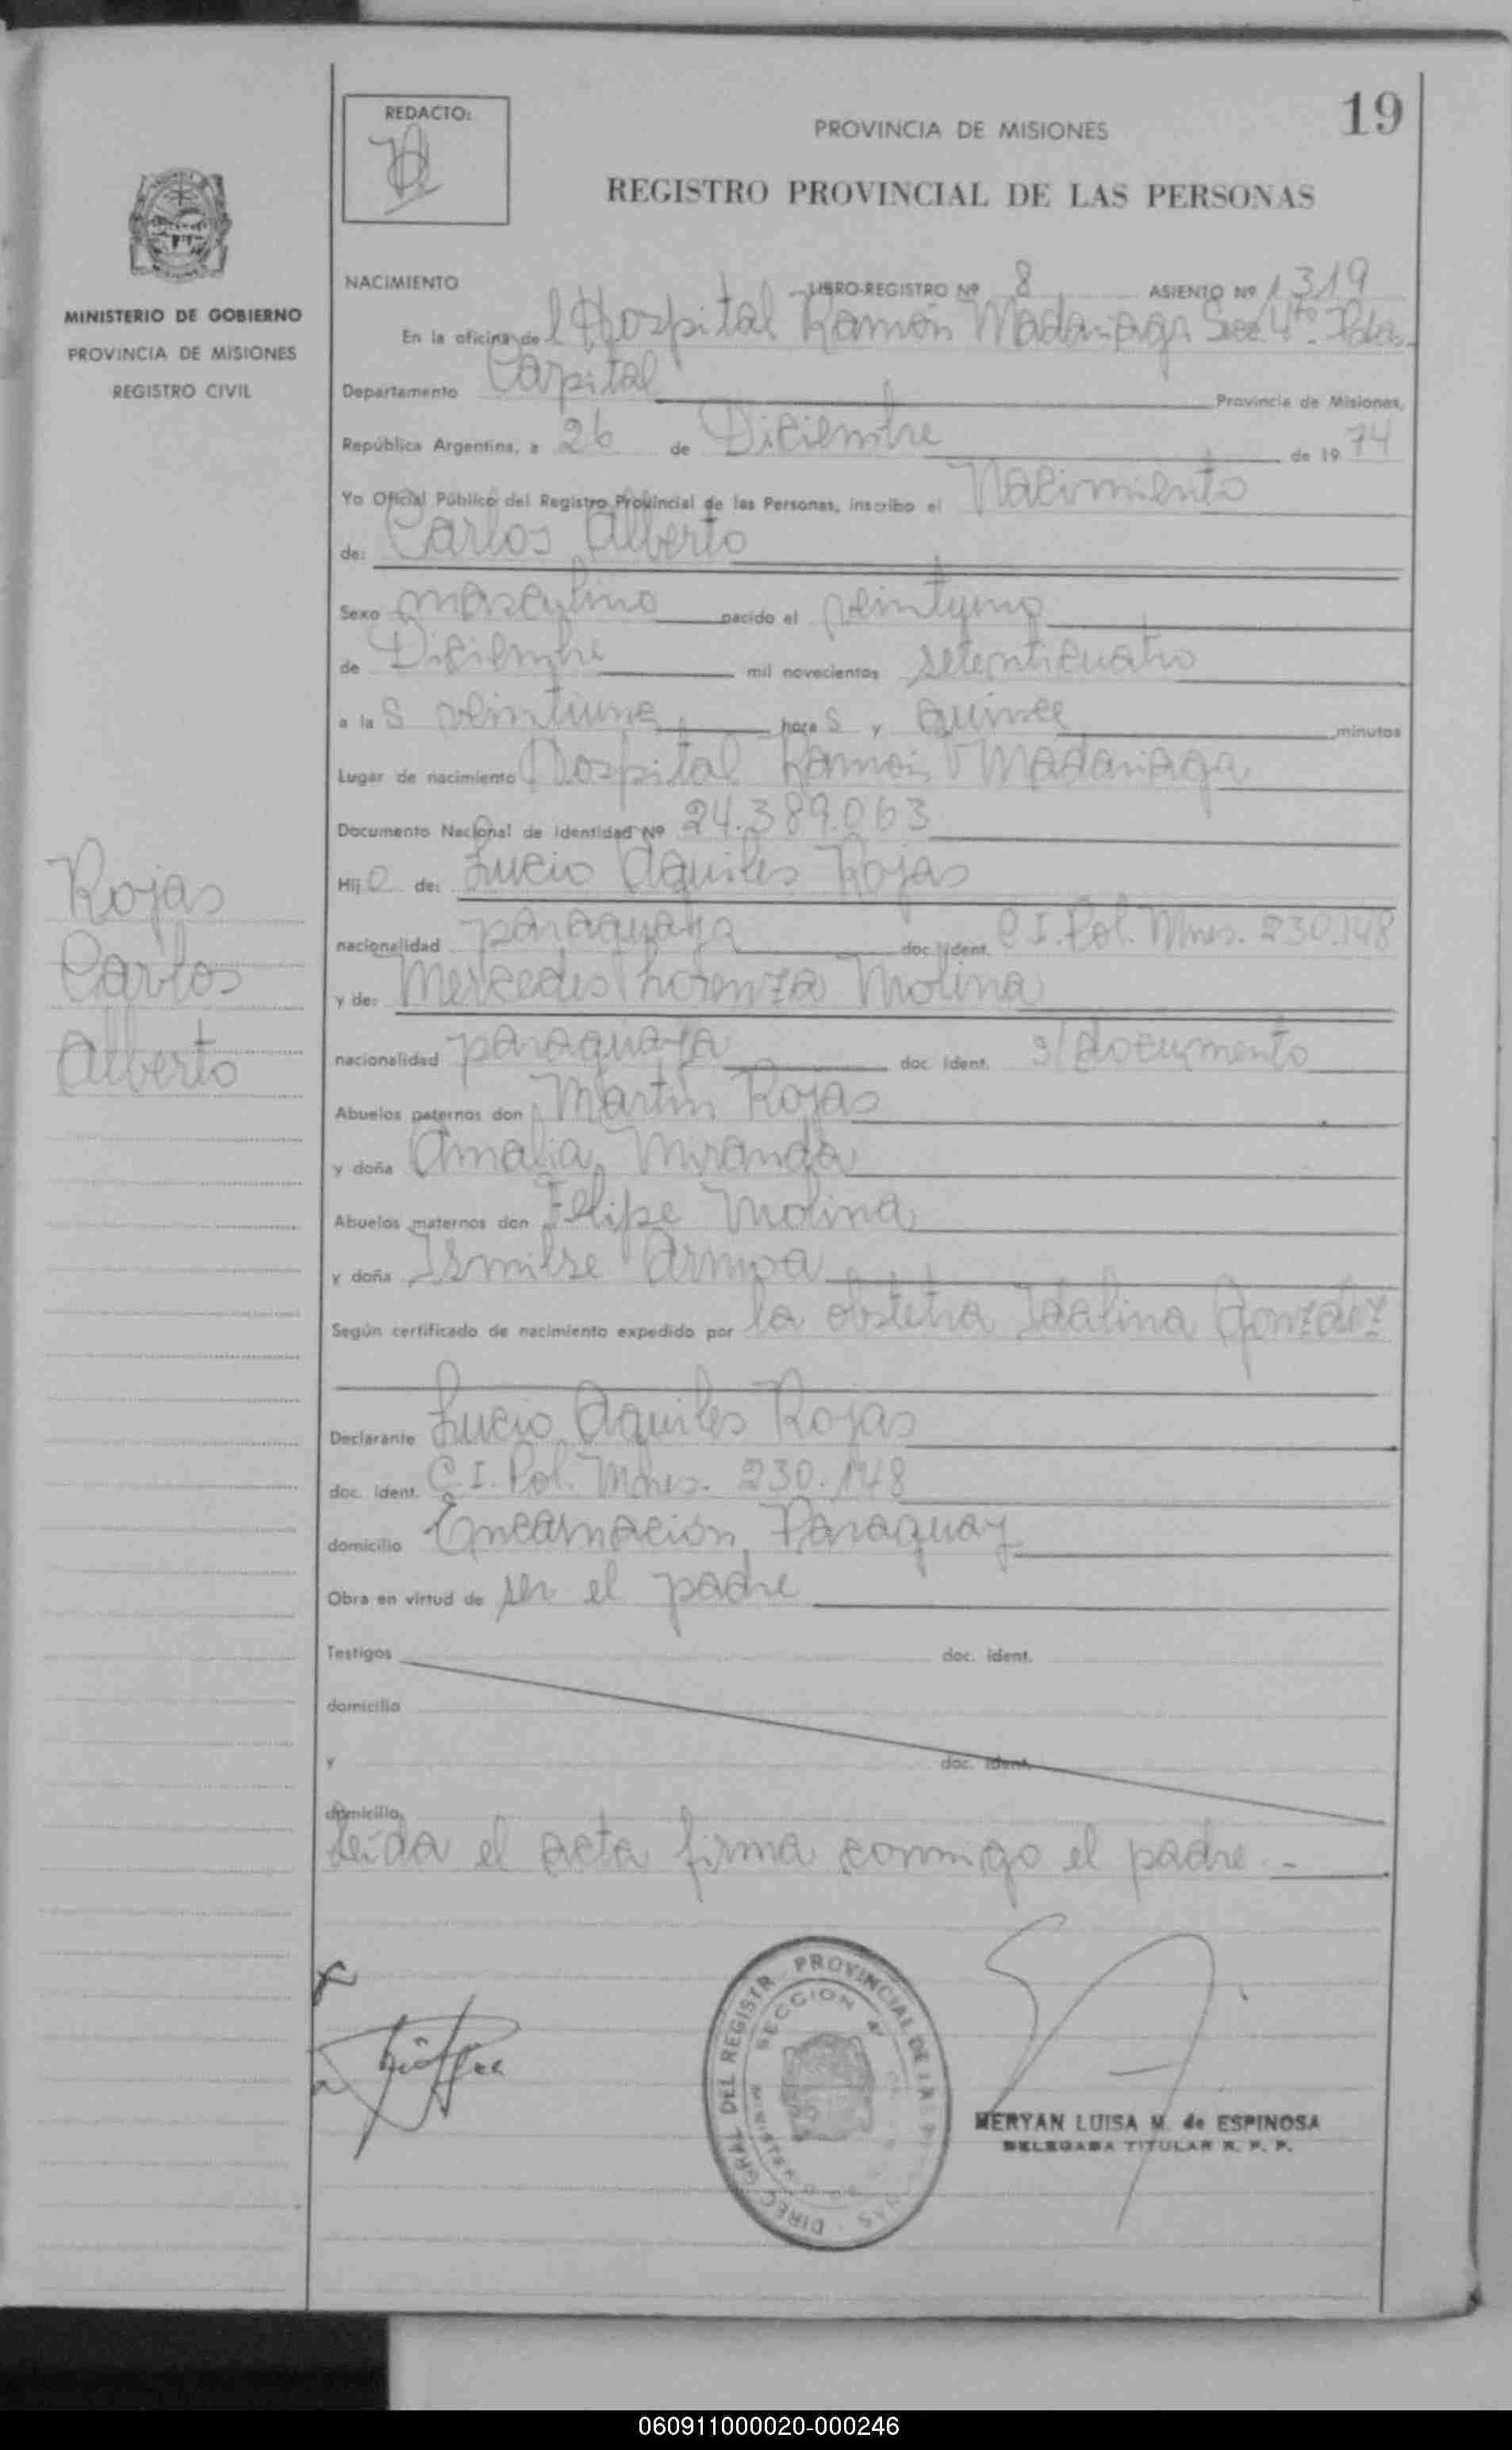 19
REDACTO:
PROVINCIA DE MISIONES
REGISTRO PROVINCIAL DE LAS PERSONAS
MINISTERIO DE GOBIERNO
PROVINCIA DE MISIONES
REGISTRO CIVIL
NACIMIENTO LIBRO-REGISTRO Nº 8 ASIENTO Nº 1319
En la oficina del Hospital Ramón Madariaga Secc 4ta. Pdas.
Departamento Capital Provincia de Misiones,
República Argentina, a 26 de Diciembre de 1974
Yo Oficial Público del Registro Provincial de las Personas, inscribo el Nacimiento
de: Carlos Alberto
Sexo masculino nacido el veintiuno
de Diciembre mil novecientos setenticuatro
a las veintiuna horas y quince minutos
Lugar de nacimiento Hospital Ramón Madariaga
Documento Nacional de Identidad Nº 24.389.063
Hijo de: Lucio Aquiles Rojas
nacionalidad paraguaya doc. ident. C.I. Pol. Mnes. 230.148
y de: Mercedes Lorenza Molina
nacionalidad paraguaya doc. ident. s/documento
Rojas
Carlos
Alberto
Abuelos paternos don Martín Rojas
y doña Amalia Miranda
Abuelos maternos don Felipe Molina
y doña Ismilse Armoa
Según certificado de nacimiento expedido por la obstetra Idalina González
Declarante Lucio Aquiles Rojas
doc. ident. C.I. Pol. Mnes. 230.148
domicilio Encarnación, Paraguay
Obra en virtud de ser el padre
Testigos doc. ident.
domicilio
y doc. ident.
domicilio
Leída el acta firma conmigo el padre.-
DIREC. GRAL. DEL REGISTR. PROVINCIAL DE LAS
SECCION 4ª
MERYAN LUISA M. de ESPINOSA
DELEGADA TITULAR R. P. P.
060911000020-000246